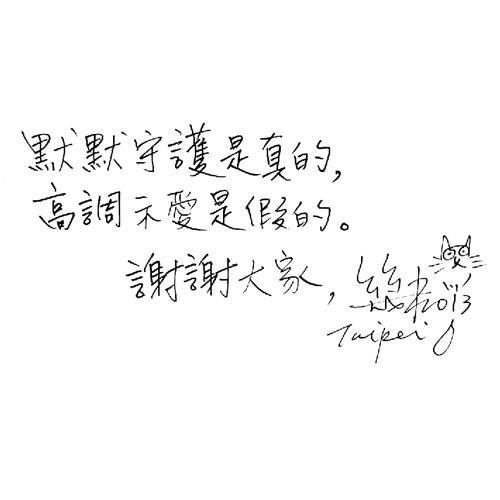 默默守護是真的,
高調示愛是假的。
謝謝大家, 2013
Taipei